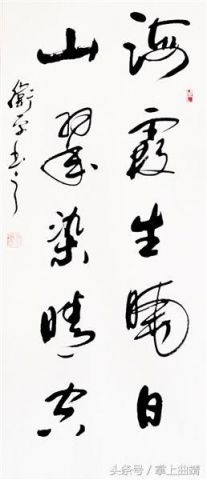 海霞生曉日
山翠染晴空
衛平书之
头条号 / 掌上曲靖